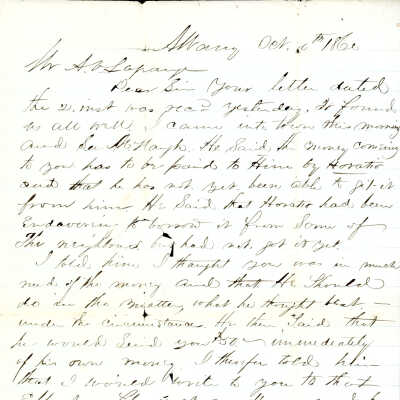 Albany Oct. 6th 186
Mr A D Lapaugh
Dear Sir Your letter dated
the 21. inst was recd yesterday. It found
us all well. I came into town this morning
and see McHaugh. He said the money coming
to you has to be paid to Him by Horatio
and that he has not yet been able to get it
from him He Said that Horatio had been
Endavering to borrow it from Some of
The neighbours but had not got it yet
I told him I thought you was in much
need of the money and that He Should
do in the matter what he thought best –
under the circumstances. He then Said that
he would Send you immediately
of his own money. I therefor told him
that I would write to you to that